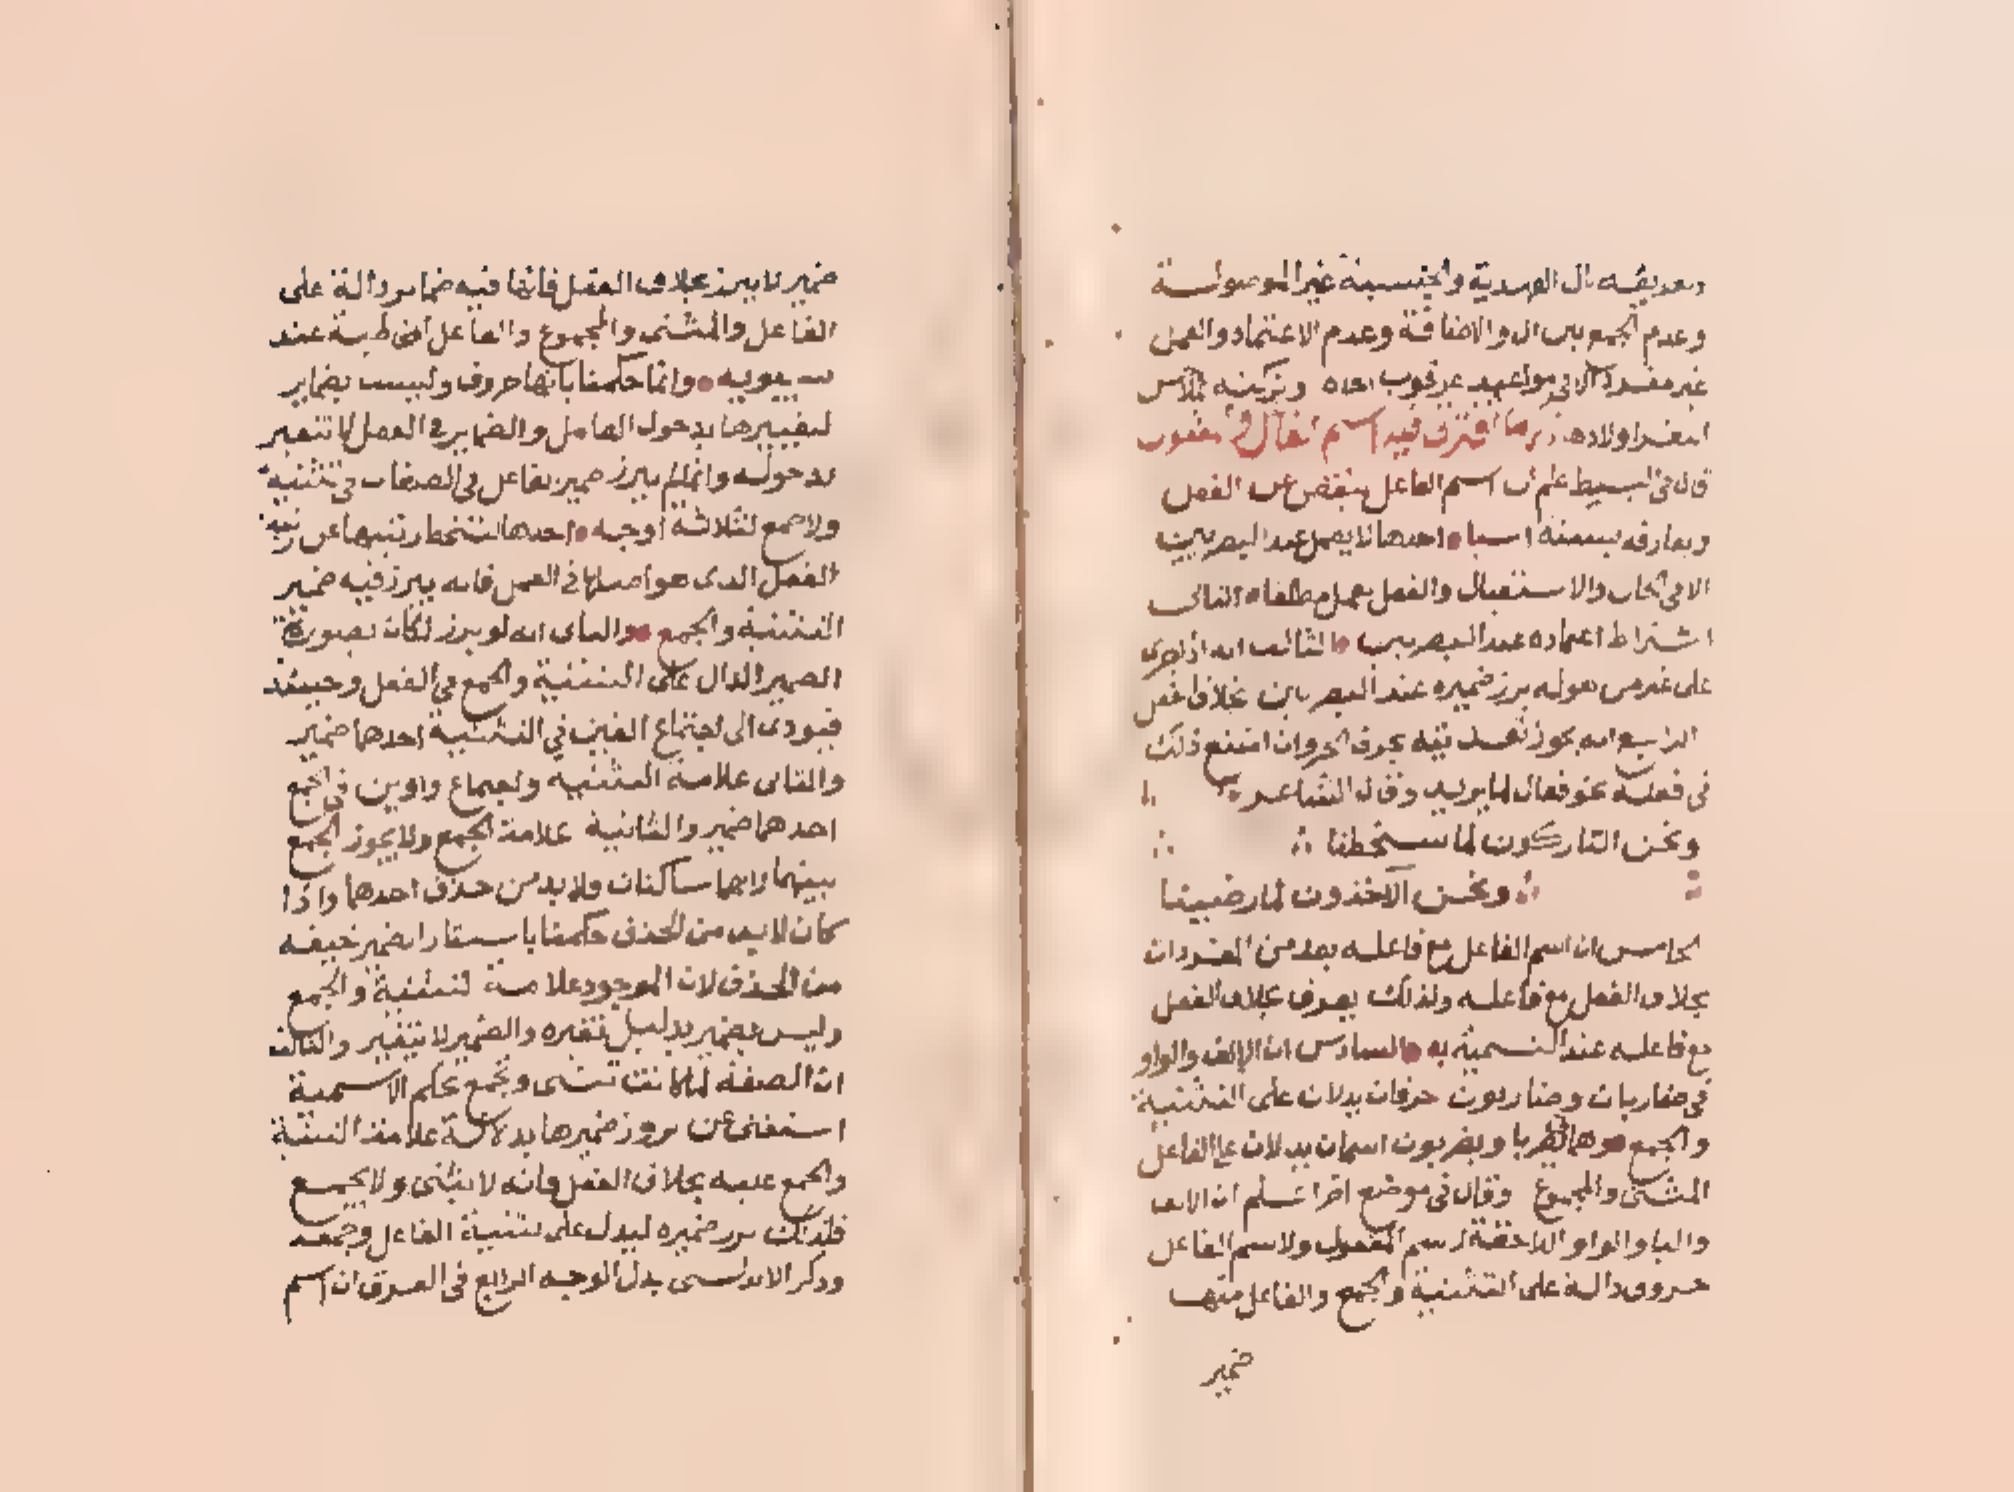 وتعريفه بال العهدية والجنسية غير الموصولة
وعدم الجمع بين ال والاضافة وعدم الاعتماد والعمل
غير مفرد كالا في مواعيد عرقوب اخاه وتركته بملاحس
البقر اولادها ذكر ما افترق فيه اسم الفاعل والفعل
قال في البسيط علم ان اسم الفاعل ينقص عن الفعل
ويفارقه بستة اسباب احدها لا يعمل عند البصريين
الا في الحال والاستقبال والفعل يعمل مطلقا الثاني
اشتراط اعتماده عند البصريين الثالث انه اذا جرى
على غير من هو له برز ضميره عند البصريين بخلاف الفعل
الرابع انه يجوز تعديته بحرف الجر وان امتنع ذلك
في فعله نحو فعال لما يريد وقال الشاعر
ونحن التاركون لما سخطنا
ونحن الآخذون لما رضينا
الخامس ان اسم الفاعل مع فاعله يعد من المفردات
بخلاف الفعل مع فاعله ولذلك يعرف بخلاف الفعل
مع فاعله عند التسمية به السادس ان الالف والواو
في ضاربان وضاربون حرفان يدلان على التثنية
والجمع وهما في يضربا ويضربون اسمان يدلان على الفاعل
المثنى والمجموع وقال في موضع اخر اعلم ان الالف
واليا والواو اللاحقة لاسم المفعول ولاسم الفاعل
حروف دالة على التثنية والجمع والفاعل منها
ضمير
ضمير لا يبرز بخلاف الفعل فانها فيه ضماير دالة على
الفاعل والمثنى والمجموع والفاعل المخاطبة عند
سيبويه وانما حكمنا بانها حروف وليست بضماير
لتغييرها بدخول العامل والضمير في الفعل لا يتغير
بدخوله وانما لم يبرز ضمير الفاعل في الصفات في تثنية
ولا جمع لثلاثة اوجه احدها لتنحط رتبتها عن رتبة
الفعل الذي هو اصلها في العمل فانه يبرز فيه ضمير
التثنية والجمع والثاني انه لو برز لكان بصورة
الضمير الدال على التثنية والجمع في الفعل وحينئذ
فيودي الى اجتماع الفين في التثنية احدهما ضمير
والثاني علامة التثنية واجتماع واوين في الجمع
احدهما ضمير والثانية علامة الجمع ولا يجوز الجمع
بينهما لانهما ساكنان ولا بد من حذف احدهما واذا
كان لا بد من الحذف حكمنا باستتار الضمير خيفة
من الحذف لان الموجود علامة التثنية والجمع
وليس بضمير بدليل تغيره والضمير لا يتغير والثالث
ان الصفة لما كانت تثنى وتجمع بحكم الاسمية
استغنى عن بروز ضميرها بدلالة علامة التثنية
والجمع عليه بخلاف الفعل فانه لا يثنى ولا يجمع
فلذلك برز ضميره ليدل على تثنية الفاعل وجمعه
وذكر الاندلسي بدل الوجه الرابع في الفرق ان اسم